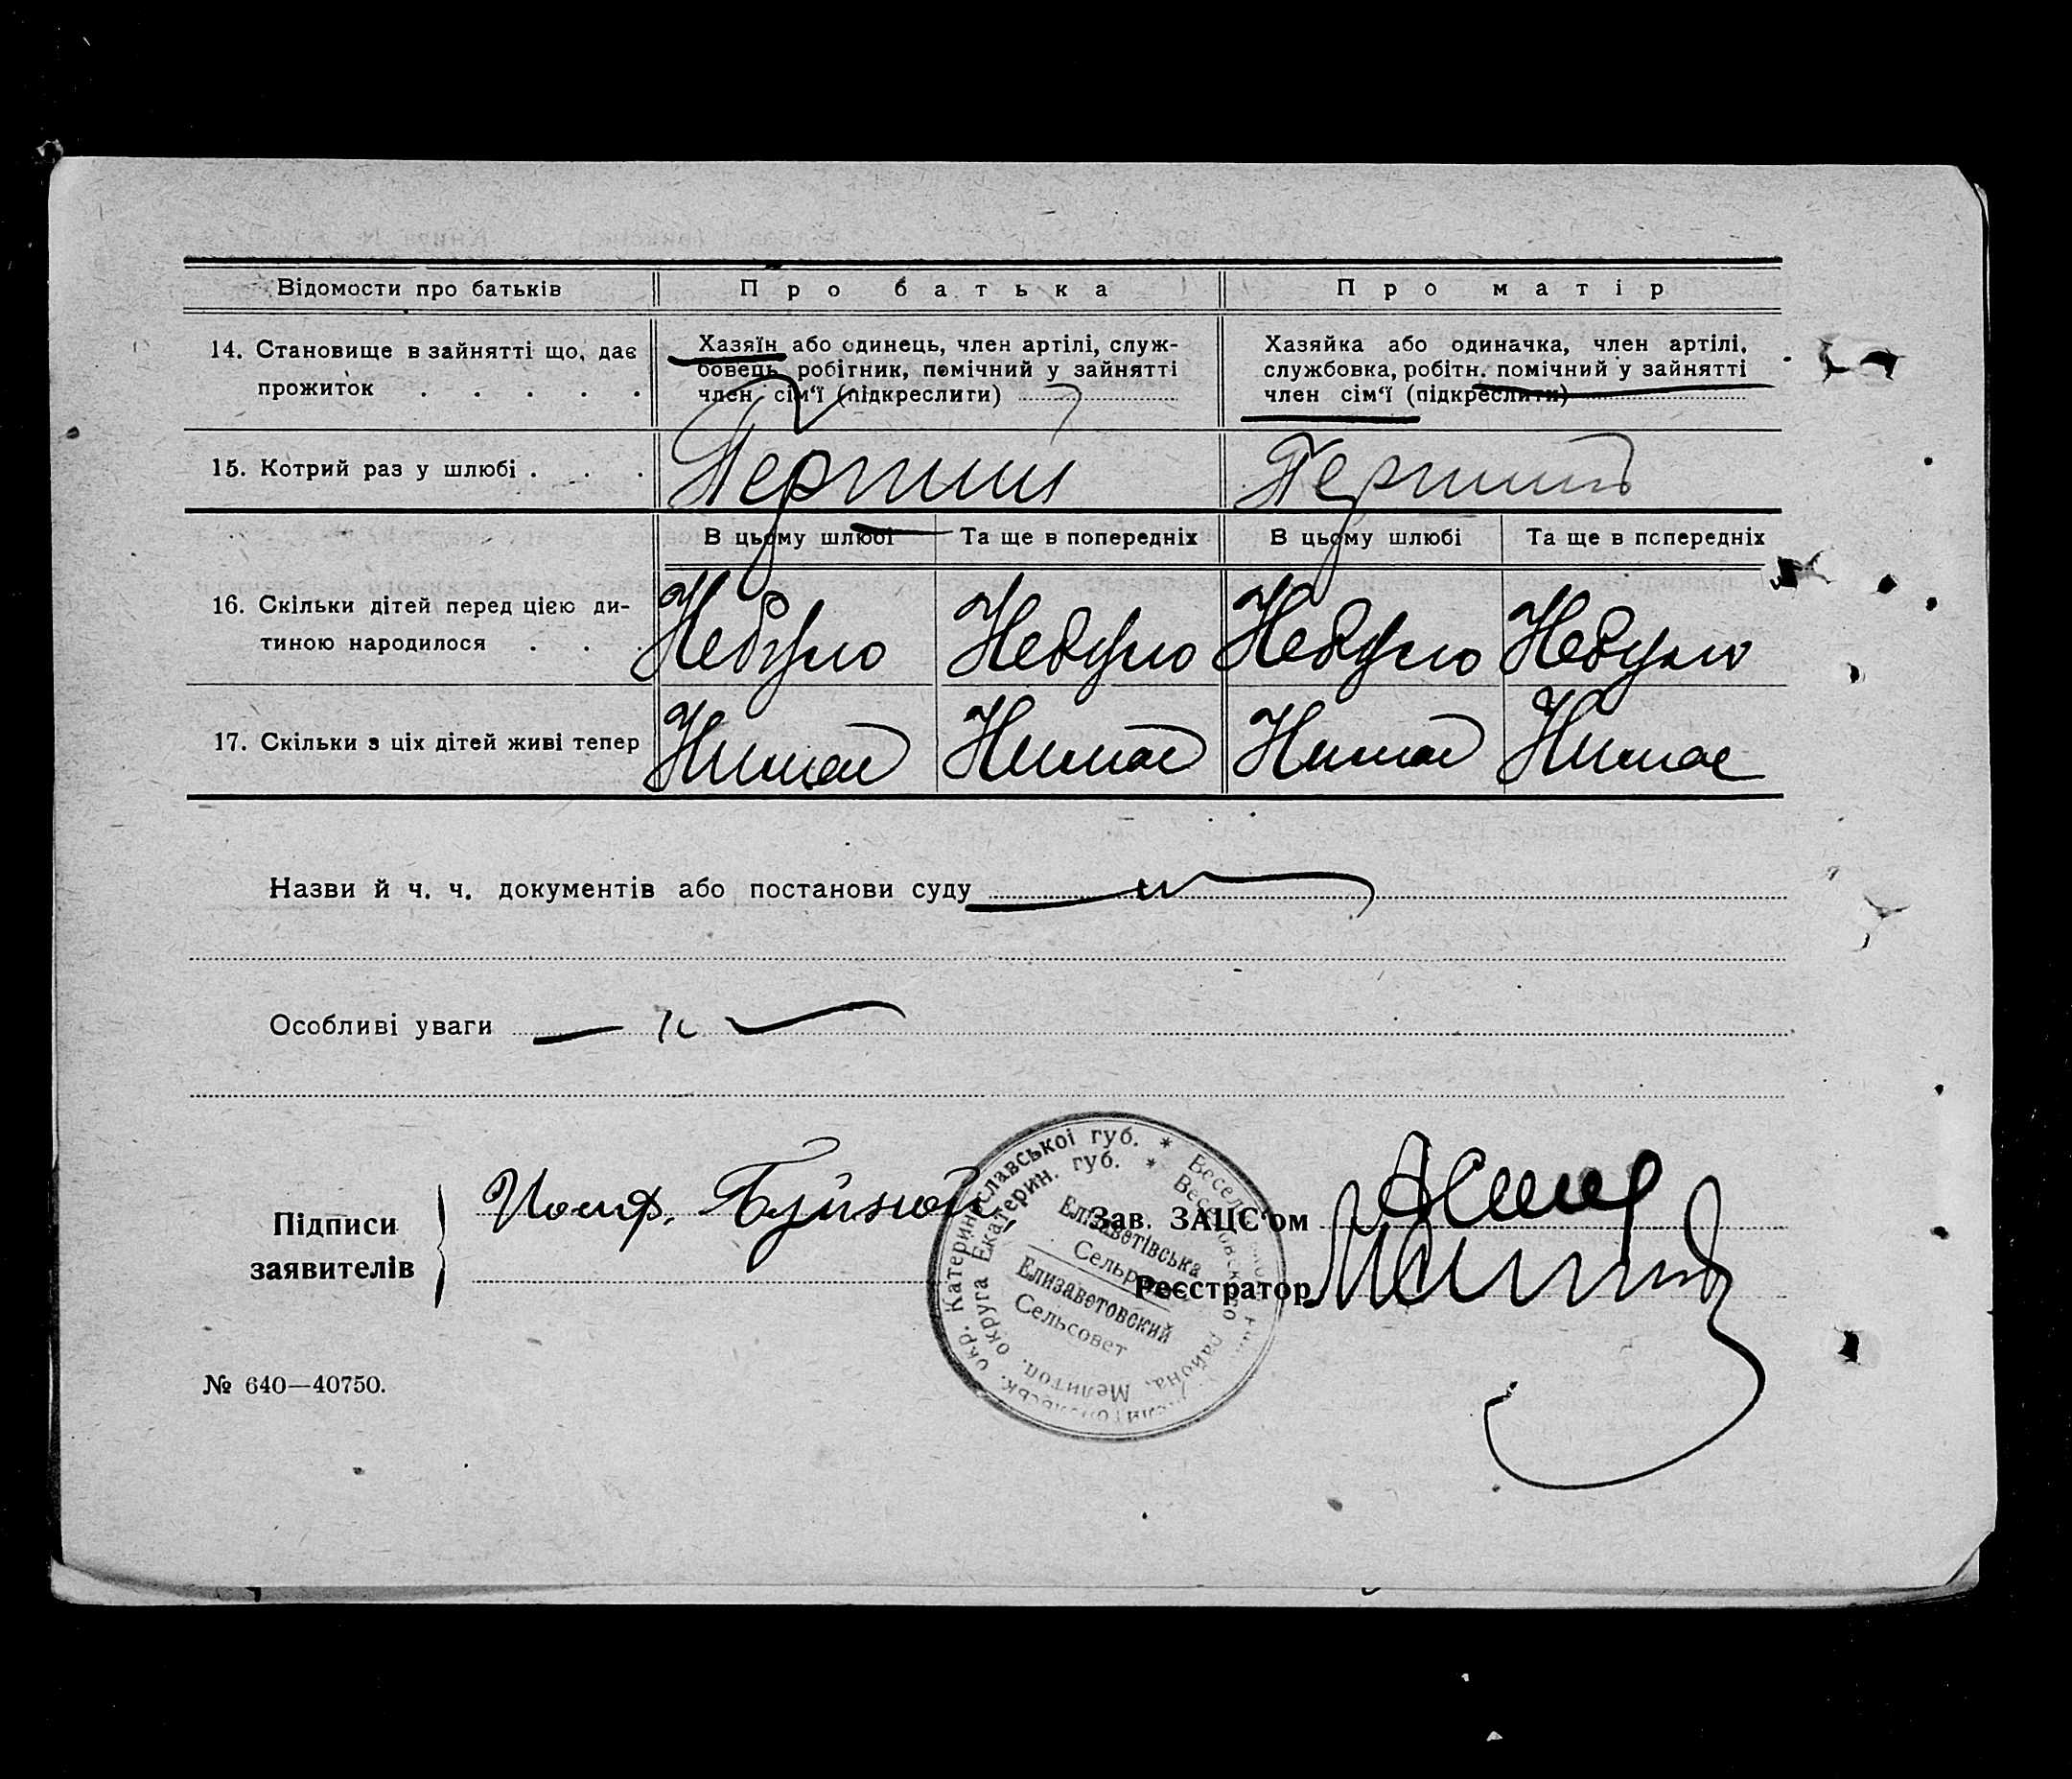 Відомости про батьків
Про батька
Про матір
14. Становище в зайнятті що, дає прожиток . . . . .
Хазяїн або одинець, член артілі, служ-
бовець, робітник, помічний у зайнятті
член сім‘ї (підкреслити)
Хазяйка або одиначка, член артілі,
службовка, робітн. помічний у зайнятті
член сім‘ї (підкреслити)
15. Котрий раз у шлюбі . . .
Перший
Перший
В цьому шлюбі
Та ще в попередніх
В цьому шлюбі
Та ще в попередніх
16. Скільки дітей перед цією ди-
тиною народилося . . .
Небуло
Небуло
Небуло
Небуло
17. Скільки з ціх дітей живі тепер
Нимає
Нимає
Нимає
Нимає
Назви й ч. ч. документів або постанови суду
Особливі уваги
Підписи
заявителів
Зав. ЗАЦС‘ом
Реєстратор
Єлізаветівська
Сельрада
Елизаветовский
Сельсовет
№ 640—40750.